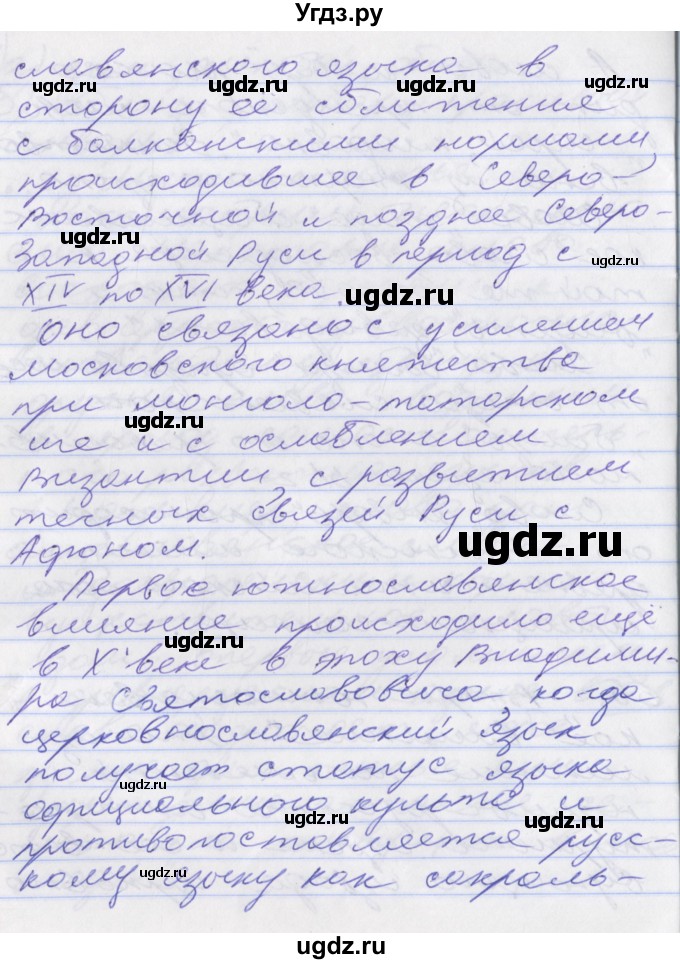 Угдз.ру
славянского языка в
сторону её сближения
с балканскими нормами,
происходившее в Северо-
Восточной и позднее Северо-
Западной Руси в период с
XIV по XVI века.
Оно связано с усилением
Московского княжества
при монголо-татарском
иге и с ослаблением
Византии, с развитием
тесных связей Руси с
Афоном.
Первое южнославянское
влияние происходило ещё
в X веке в эпоху Владими-
ра Святославовича, когда
церковнославянский язык
получает статус языка
официального культа и
противопоставляется русс-
кому языку как сакраль-
ugdz.ru
ugdz.ru
ugdz.ru
ugdz.ru
ugdz.ru
ugdz.ru
ugdz.ru
ugdz.ru
ugdz.ru
ugdz.ru
ugdz.ru
ugdz.ru
ugdz.ru
ugdz.ru